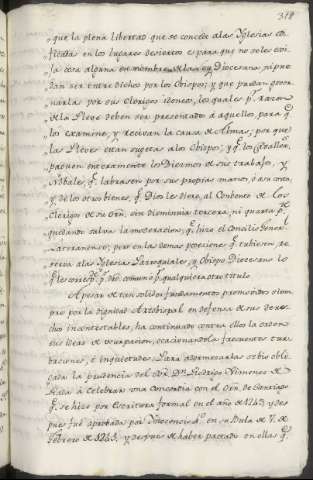 318
que la plena libertad que se concede alas Yglesias edi-
ficadas en los lugares desiertos es para que no se les exi-
ja cosa alguna en nombre de la ley Diocesana, ni pue-
dan ser entredichos por los Obispos; y que puedan gover-
narlas por sus Clerigos idoneos, los quales pr. razon
de la Pleve deben ser presentados à aquellos para q.e
los examine, y recivan la cura de Almas, por que
las Pleves estan sugetas alos Obispos; y q.e los Cavalleros
paguen enteramente los Diezmos de sus trabajos, y
Nobales, q.e labrasen por sus propias manos, ò a su costa,
y de los otros bienes, q.e Dios les diere, al Combento de los
Clerigos de su Orñ. sin disminuir tercera, ni quarta p.te
quedando salva la moderacion, q.e hizo el Concilio General
Lateranense; pero en las demas poseciones q.e tubiesen, se
reserva alas Yglesias Parroquiales, y Obispo Diocesano lo
q.e les corresp.de p.r dro. comun ò p.r qualquiera otro titulo.
A pesar de tan solidos fundamentos promovidos siem-
pre por la dignidad Arzobispal en defensa de sus dere-
chos incontestables, ha continuado contra ellos la orden
sus ideas de usurpacion, ocacionandola frecuentes tur-
baciones, è inquietudes. Para adormecerlas se bio obli-
gada la prudencia del Orñ. D.n Rodrigo Ximenez de
Rada à celebrar una Concordia con el Orñ. de Santiago
q.e se hizo por Escritura formal en el año de 1243 y des-
pues fué aprobada por Ynocencio 4.o en su Bula de 7. de
Febrero de 1245, y despues de haber pactado en ellas q.e